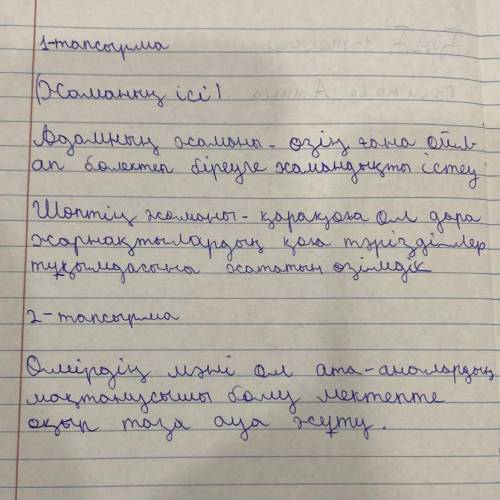 1-тапсырма
Жаманың ісі!
Адамның жаманы - өзің ғана ойл-
ап бөлектеп біреуге жамандықты істеу
Шөптің жаманы - қарақоға ол дара
жарнақтылардың қоға тәрізділер
тұқымдасына жататын өзімдік
2- тапсырма
Өмірдің мәні ол ата-аналардың
мақтанушысы болу мектепте
оқып таза ауа жұту.